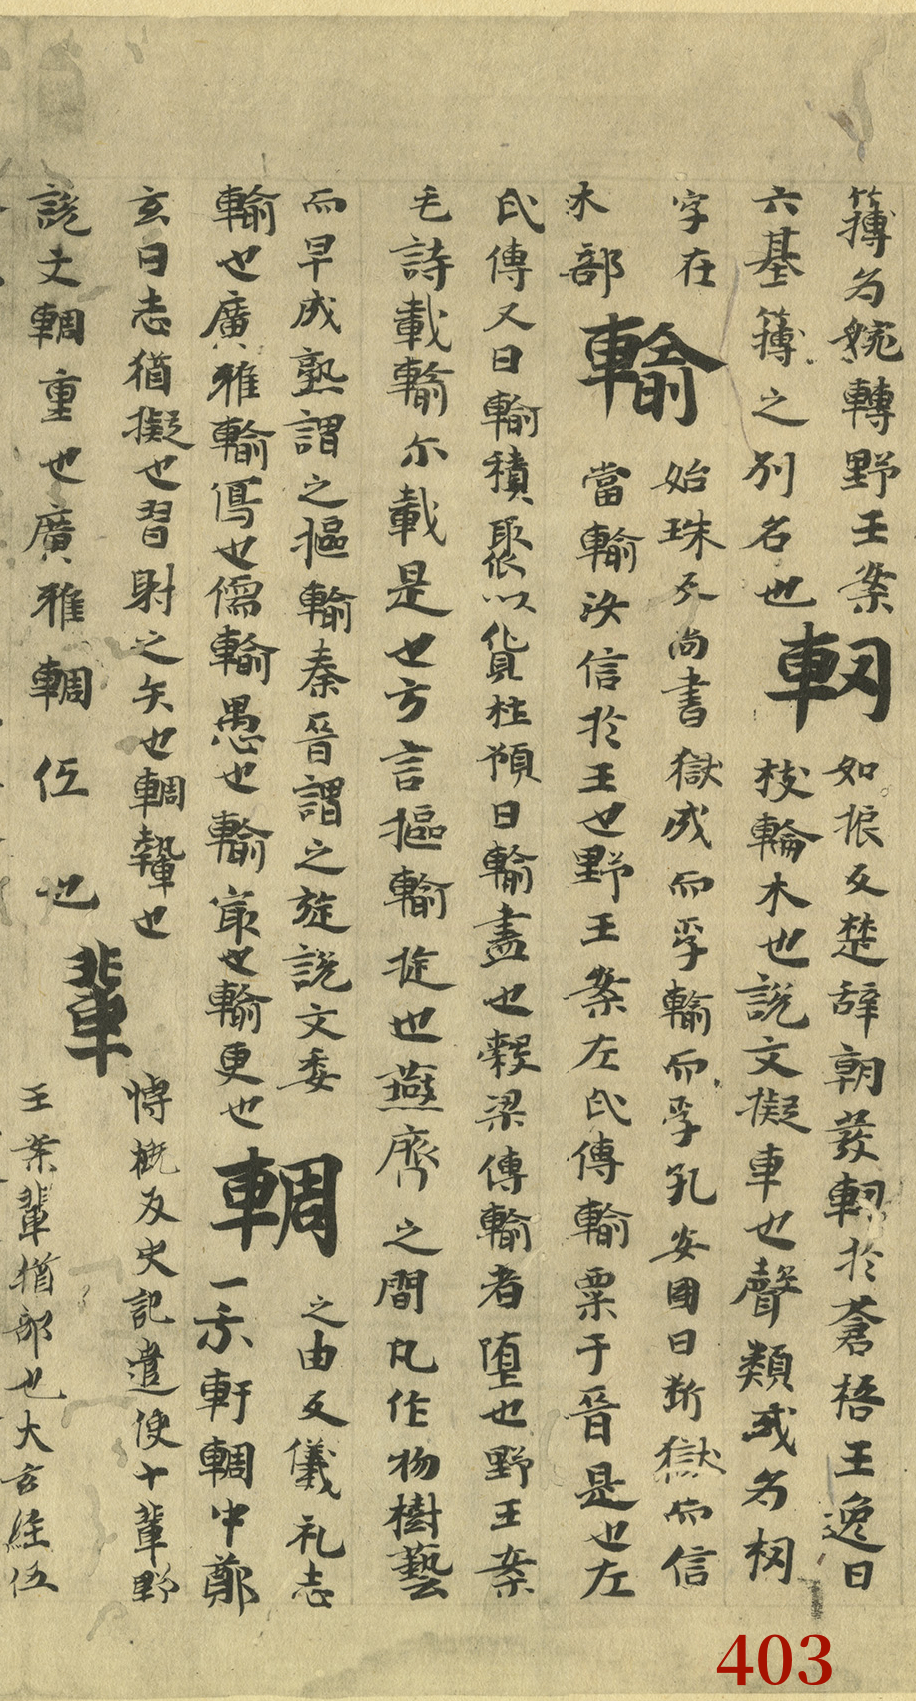 簿为婉轉野王案
六基簿之別名也
軔
如振反楚辞朝發軔於蒼梧王逸曰
枝輪木也說文擬車也聲類或为杒
字在
木部
輸
始珠反尚書獄成而孚輸而孚孔安國曰断獄而信
當輸汝信於王也野王案左氏傳輸粟于晉是也左
氏傳又曰輸積聚以貨杜預曰輸盡也穀梁傳輸者堕也野王案
毛詩載輸尔載是也方言摳輸捝也燕齊之間凡作物樹藝
而早成熟謂之摳輸秦晉謂之旋說文委
輸也廣雅輸寫也儒輸愚也輸冣也輸更也
輖
之由反儀礼志
一示軒輖中鄭
玄曰志猶擬也習射之矢也輖蟄也
說文輖重也廣雅輖仾也
輩
博概反史記遣使十輩野
王案輩猶部也大玄經伍
403